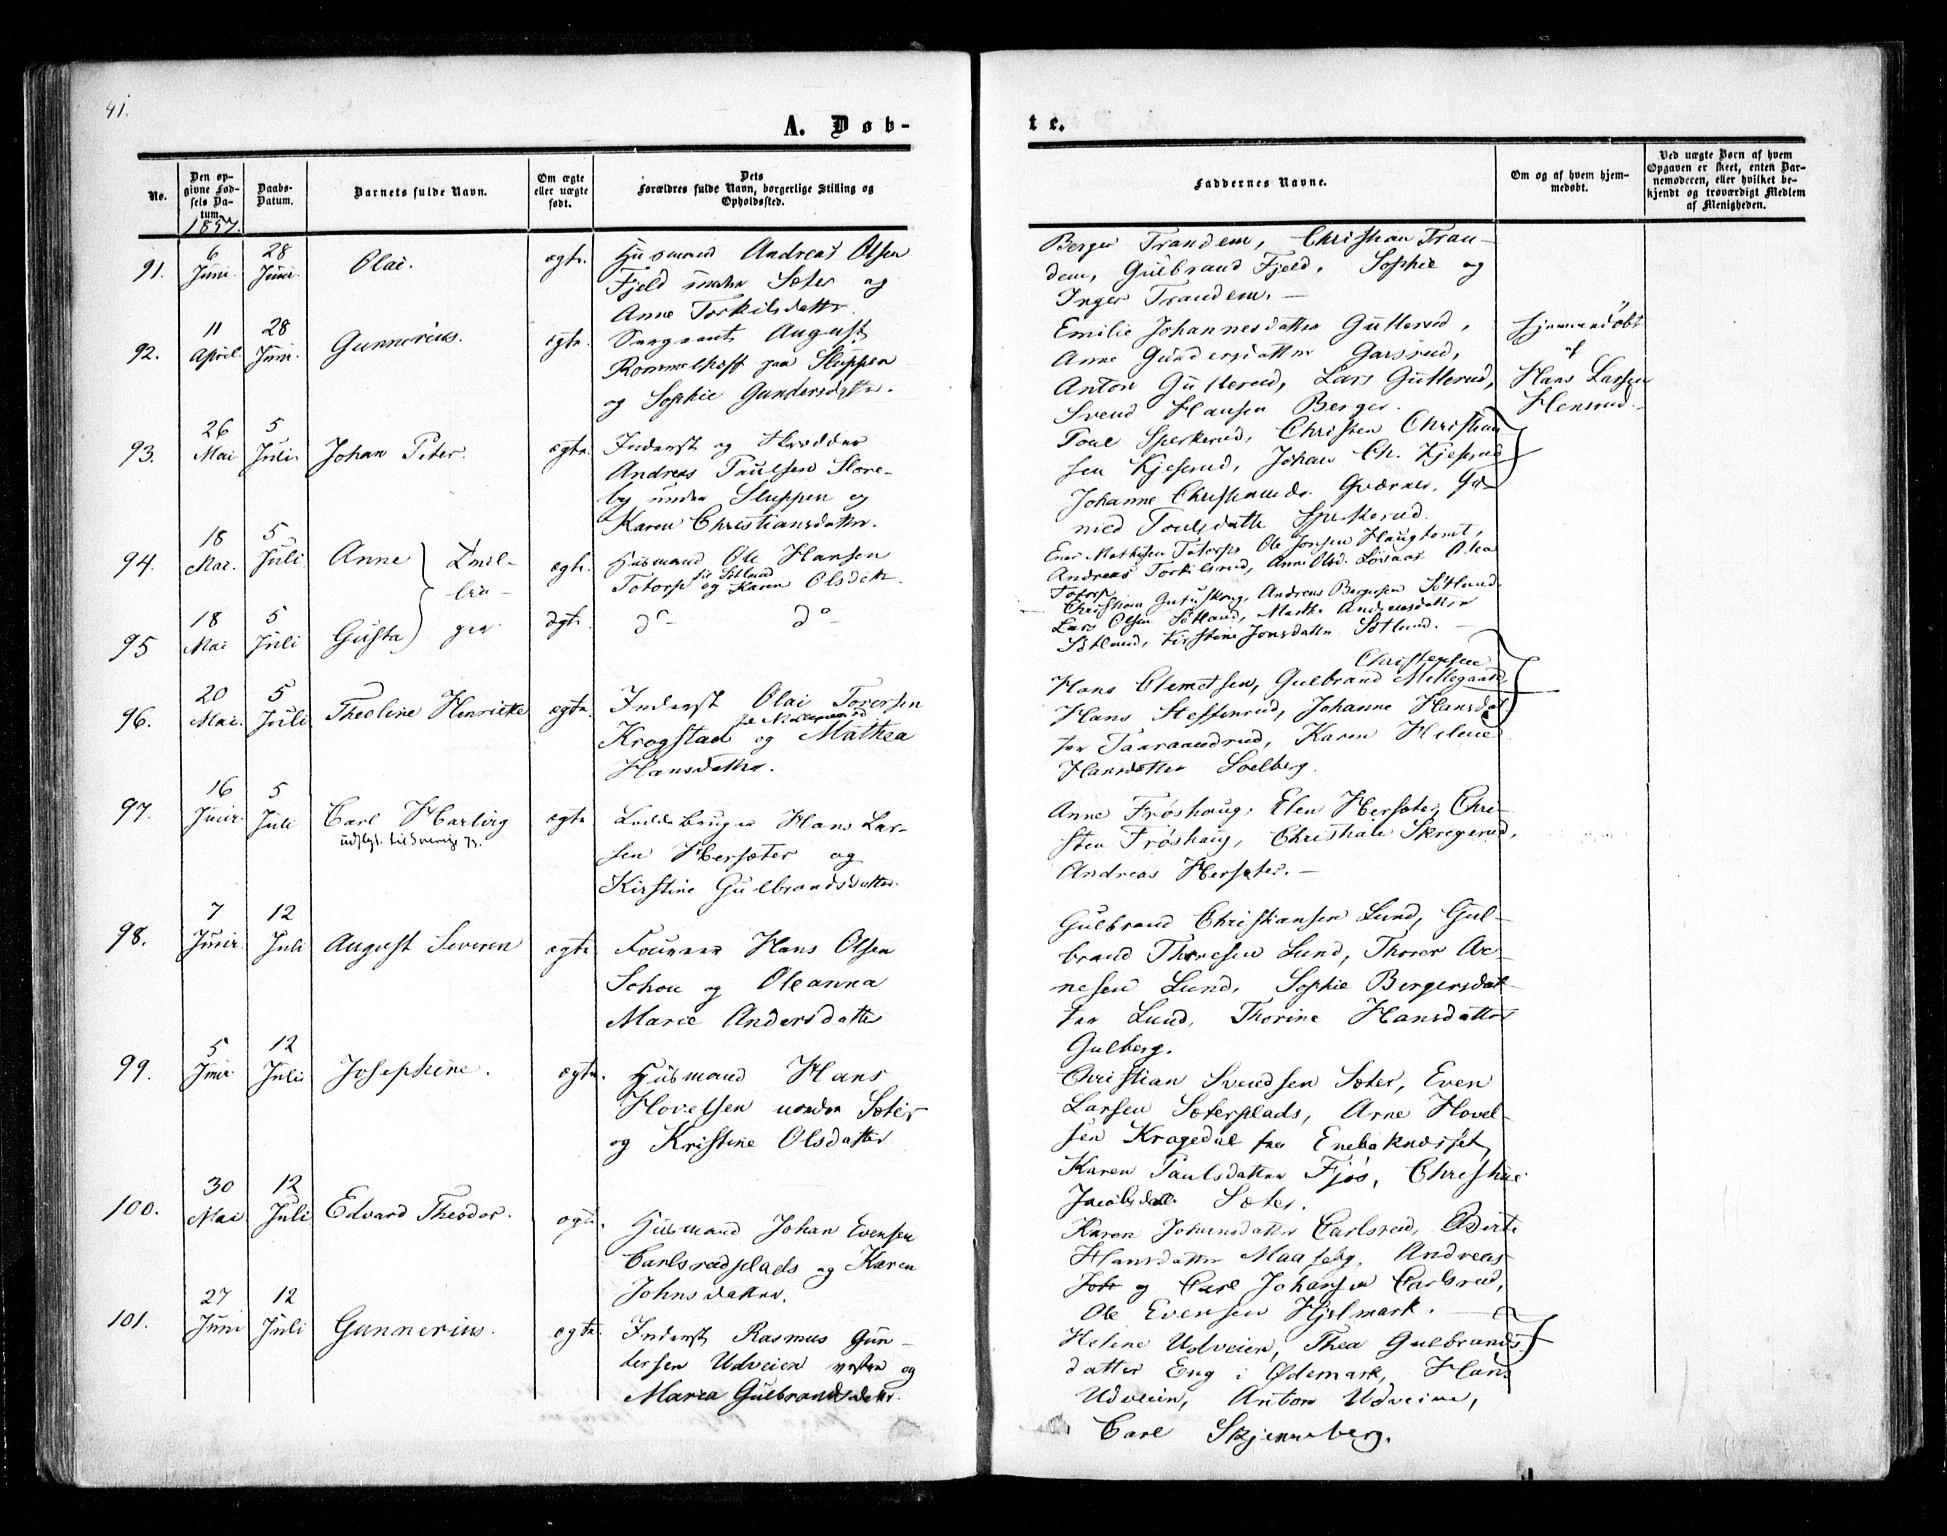 41.
A. Døb-
te.
No.
Den op-
givne Fød-
sels Da-
tum.
1857.
Daabs-
Datum.
Barnets fulde Navn.
Om ægte
eller uægte
født.
Dets
Forældres fulde Navn, borgerlige Stilling og
Opholdssted.
Faddernes Navne.
Om og af hvem hjem-
medøbt.
Ved uægte Børn af hvem
Opgaven er skeet, enten Bar-
nemoderen, eller hvilket be-
kjendt og troværdigt Medlem
af Menigheden.
91.
6
Juni
28
Juni
Olai.
ægte.
Husmand Andreas Olsen
Fjeld under Sæter og
Anne Torkilsdatter.
Berger Trandem, Christian Tran-
dem, Gulbrand Fjeld, Sophie og
Inger Trandem. —
92.
11
April
28
Juni
Gunnerius.
ægte.
Sergeant August
Rommelhoff paa Sluppen
og Sophie Gundersdatter.
Emilie Johannesdatter Gutterud,
Anne Gundersdatter Garsrud,
Anton Gutterud, Lars Gutterud,
Svend Hansen Berger.
Hjemmedøbt
af
Hans Larsen
Hensrud.
93.
26
Mai
5
Juli
Johan Peter.
ægte.
Inderst og Skrædder
Andreas Paulsen Store-
by under Sluppen og
Karen Christiansdatter.
Poul Sperkerud, Christen Christian
sen Kjeserud, Johan Ch. Kjeserud
Johanne Christiansdr. Gværnes, Gu-
nild Poulsdatter Sperkerud.
94.
18
Mai.
5
Juli
Anne
Tvil-
lin-
ger
ægte.
Husmand Ole Hansen
Totorp og Karen Olsdatter.
Ener Mathisen Totorp, Ole Jonsen Haugtomt,
Andreas Torkilsrud, Anne Olsd. Løsaas, Olea
Totorp
95
18
Mai
5
Juli
Gusta
ægte.
do —
do —
Lars Olsen Sotland, Marthe Andersdatter
Sotland, Kirstine Jonsdatter Sotlund. —
96.
20
Mai.
5
Juli
Theoline Henriette
ægte.
Inderst Olai Torersen
Krogstad og Mathea
Hansdatter.
Christensen
Hans Clemetsen, Gulbrand Mellegaard
Hans Steffenrud, Johanne Hansdat
ter Taaraandrud, Karen Helene
Hansdatter Solberg.
97.
16
Juni.
5
Juli
Carl Hartvig
udflyt. til Sverige 73.
ægte
Leilebruger Hans Lar-
sen Hersæter og
Kirstine Gulbrandsdatter.
Anne Frøshaug, Elen Hersæter, Chri-
sten Frøshaug, Christian Skregerud,
Andreas Hersæter. —
98.
7
Juni.
12
Juli
August Severen
ægte
Fourer Hans Olsen
Schou og Oleanna
Marie Andersdatter
Gulbrand Christiansen Lund, Gul-
brand Thoresen Lund, Thorer Ar-
nesen Lund, Sophie Bergersdat-
ter Lund, Thorine Hansdatter
Gulberg.
99.
5
Juni
12
Juli
Josephine.
ægte.
Husmand Hans
Hovelsen under Sæter
og Kristine Olsdatter
Christian Svendsen Sæter, Even
Larsen Sæterplads, Arne Hovel-
sen Kragedal fra Enebaknæsset,
Karen Paulsdatter Fjøs, Christine
Jacobsdatter Sæter.
100.
30
Mai
12
Juli
Edvard Theodor.
ægte.
Husmand Johan Evensen
Carlsrudplads og Karen
Johnsdatter.
Karen Johnsdatter Carlsrud, Berte
Hansdatter, Andreas
Joh og Carl Johansen Carlsrud,
Ole Evensen Hjelmark. —
101.
27
Juni
12
Juli
Gunnerius.
ægte.
Inderst Rasmus Gun-
dersen Udveien vestre og
Maria Gulbrandsdatter.
Helene Udveien, Thea Gulbrands
datter Eng i Ødemark, Hans
Udveien, Anton Udveien,
Carl Skjenneberg.